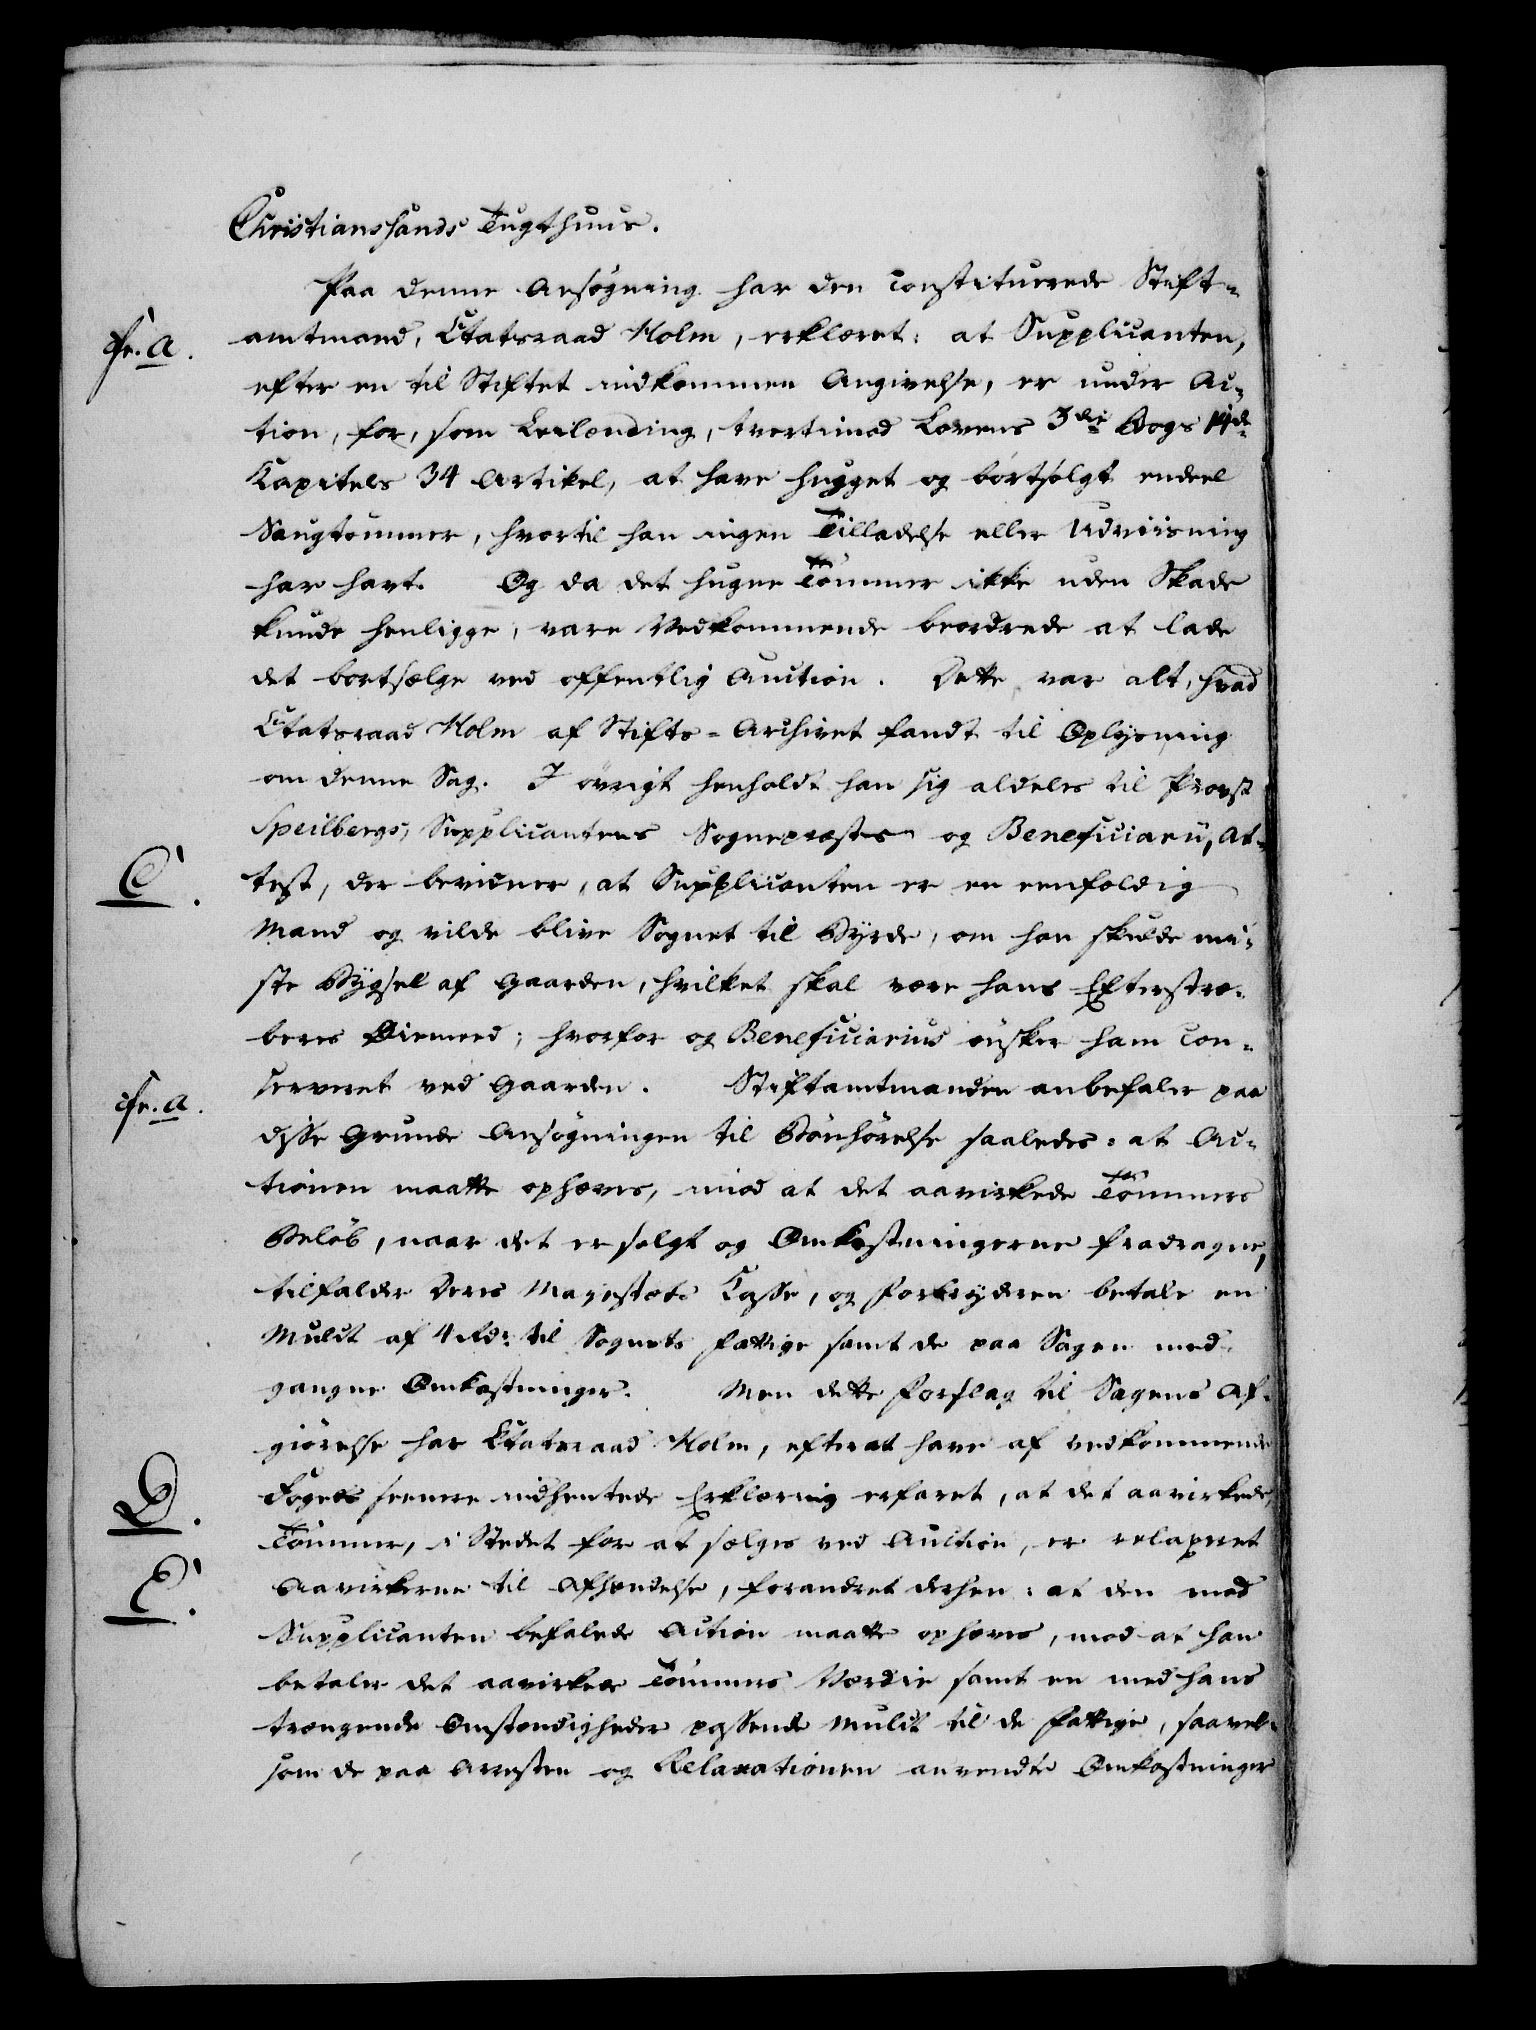 Christianssands Tugthuus.
Paa denne Ansøgning har den constituerede Stift-
cfr. a.
amtmand, Etatsraad Holm, erklæret: at Supplicanten,
efter en til Stiftet indkommen Angivelse, er under Ac-
tion, for, som Leilænding, tvertimod Lovens 3die Bogs 14de
Capitels 34 Artikel, at have hugget og bortsolgt endeel
Saugtømmer, hvortil han ingen Tilladelse eller Udviisning
har havt. Og da det hugne Tømmer ikke uden Skade
kunde henligge, vare Vedkommende beordrede at lade
det bortsælge ved offentlig Auction. Dette var alt, hvad
Etatsraad Holm af Stifts-Archivet fandt til Oplysning
om denne Sag. I øvrigt henholdt han sig aldeles til Provst
Speilbergs, Supplicantens Sognepræstes og Beneficiarii, At-
C.
test, der bevidner, at Supplicanten er en eenfoldig
Mand og vilde blive Sognet til Byrde, om han skulde mi-
ste Bygsel af Gaarden, hvilket skal være hans Efterstræ-
beres Øiemeed; hvorfor og Beneficiarius ønsker ham con-
serveret ved Gaarden. Stiftamtmanden anbefaler paa
cfr. a.
disse Grunde Ansøgningen til Bønhørelse saaledes: at Ac-
tionen maatte ophæves, imod at det aavirkede Tømmers
Beløb, naar det er solgt og Omkostningerne fradragne,
tilfalder Deres Majestæts Casse, og Forbryderen betale en
Mulct af 4 Rdr: til Sognets Fattige samt de paa Sagen med-
gangne Omkostninger. Men dette Forslag til Sagens Af-
giørelse har Etatsraad Holm, efterat have af vedkommende
D.
Fogeds seenere indhentede Erklæring erfaret, at det aavirkede
Tømmer, i Stedet for at sælges ved Auction, er relaxeret
E.
Aavirkerne til Afhændelse, forandret derhen: at den mod
Supplicanten befalede Action maatte ophæves, mod at han
betaler det aavirkede Tømmers Værdie samt en med hans
trængende Omstændigheder passende Mulct til de Fattige, saavel-
som de paa Arresten og Relaxationen anvendte Omkostninger